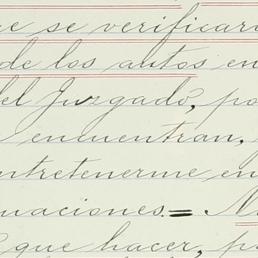 ue se verificar
de los autos en
del Juzgado, po
encuentran,
ntretenerme en
uaciones. =
que hacer, p